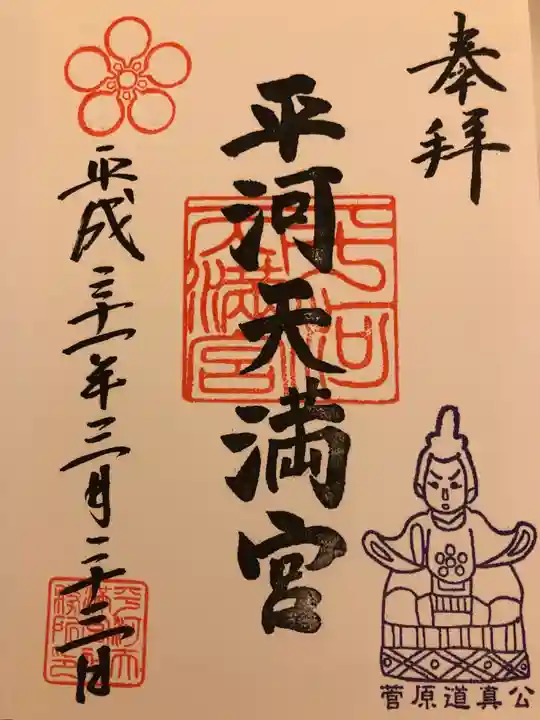 奉拝
平河天満宮
平成三十一年三月二十三日
平河天満宮
菅原道真公